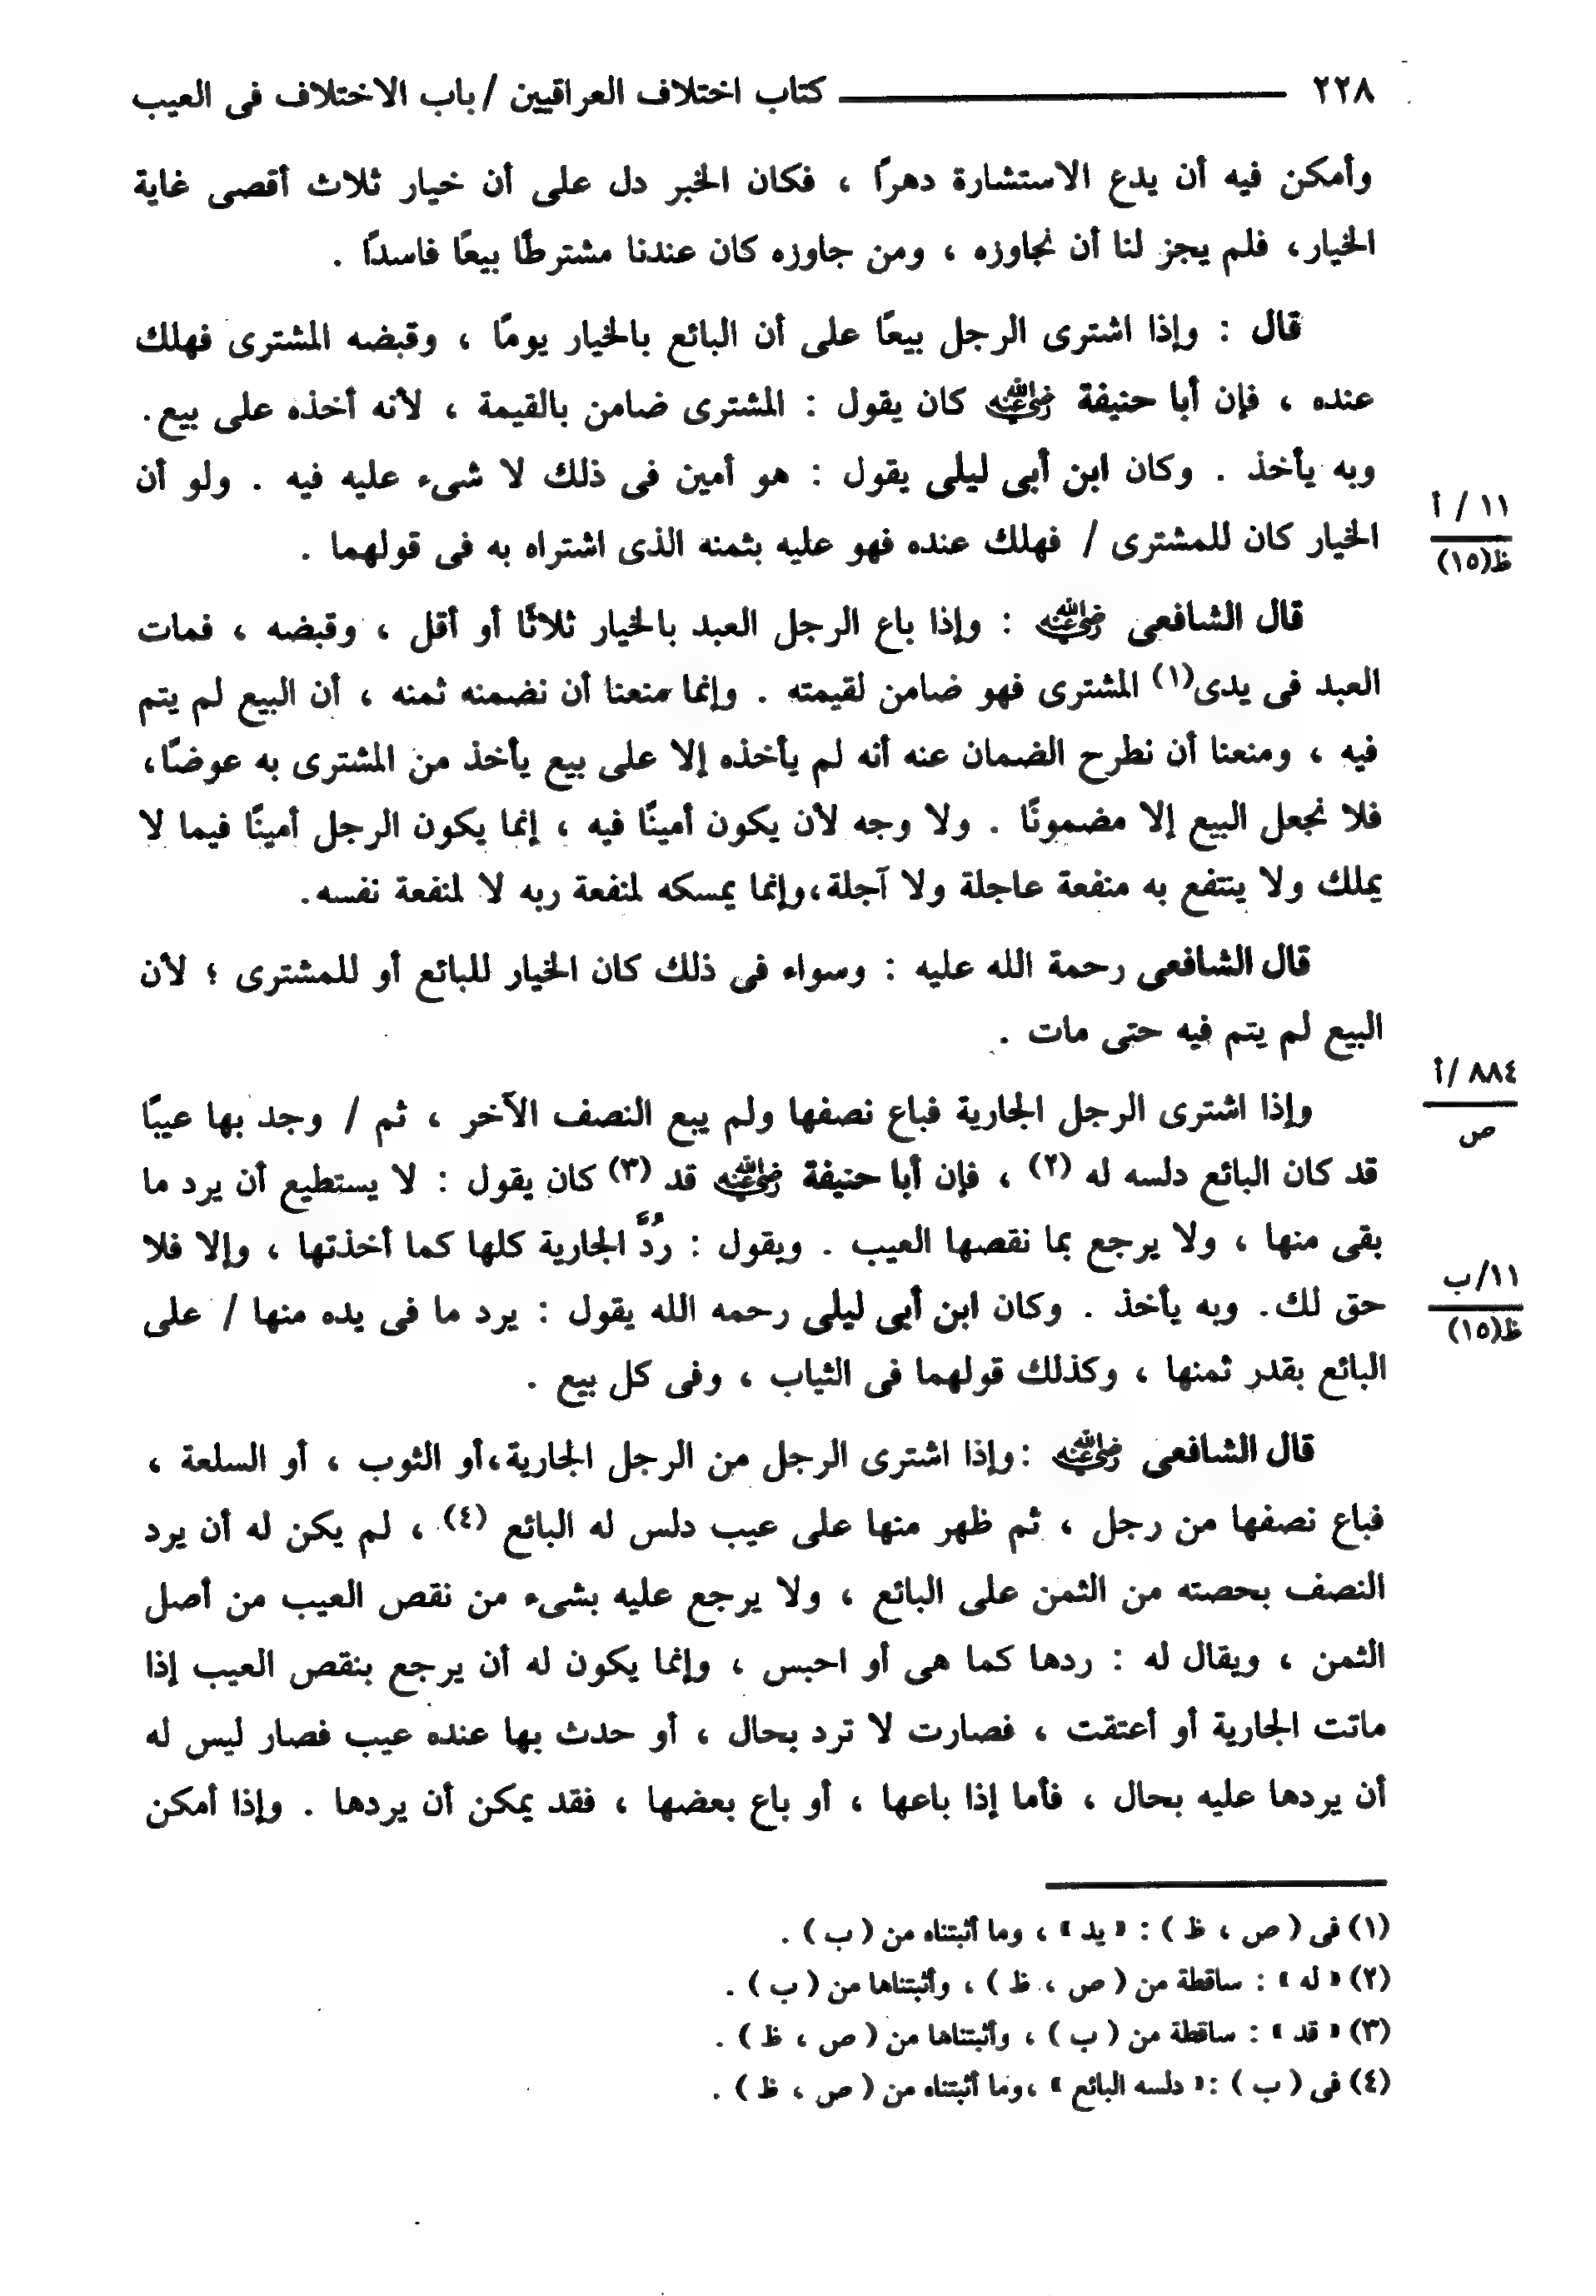 ٢٢٨ كتاب اختلاف العراقيين / باب الاختلاف فى العيب
وأمكن فيه أن يدع الاستشارة دهرًا ، فكان الخبر دل على أن خيار ثلاث أقصى غاية
الخيار، فلم يجز لنا أن نجاوزه ، ومن جاوزه كان عندنا مشترطًا بيعًا فاسدًا .
قال : وإذا اشترى الرجل بيعًا على أن البائع بالخيار يومًا ، وقبضه المشترى فهلك
عنده ، فإن أبا حنيفة رضي الله عنه كان يقول : المشترى ضامن بالقيمة ، لأنه أخذه على بيع.
وبه يأخذ . وكان ابن أبى ليلى يقول : هو أمين فى ذلك لا شىء عليه فيه . ولو أن
١١ / أ
ظ(١٥)
الخيار كان للمشترى / فهلك عنده فهو عليه بثمنه الذى اشتراه به فى قولهما .
قال الشافعى رضي الله عنه : وإذا باع الرجل العبد بالخيار ثلاثًا أو أقل ، وقبضه ، فمات
العبد فى يدى(١) المشترى فهو ضامن لقيمته . وإنما منعنا أن نضمنه ثمنه ، أن البيع لم يتم
فيه ، ومنعنا أن نطرح الضمان عنه أنه لم يأخذه إلا على بيع يأخذ من المشترى به عوضًا،
فلا نجعل البيع إلا مضمونًا . ولا وجه لأن يكون أمينًا فيه ، إنما يكون الرجل أمينًا فيما لا
يملك ولا ينتفع به منفعة عاجلة ولا آجلة،وإنما يمسكه لمنفعة ربه لا لمنفعة نفسه.
قال الشافعى رحمة الله عليه : وسواء فى ذلك كان الخيار للبائع أو للمشترى ؛ لأن
البيع لم يتم فيه حتى مات .
٨٨٤ /أ
ص
وإذا اشترى الرجل الجارية فباع نصفها ولم يبع النصف الآخر ، ثم / وجد بها عيبًا
قد كان البائع دلسه له (٢) ، فإن أبا حنيفة رضي الله عنه قد (٣) كان يقول : لا يستطيع أن يرد ما
بقى منها ، ولا يرجع بما نقصها العيب . ويقول : رُدَّ الجارية كلها كما أخذتها ، وإلا فلا
١١/ب
ظ(١٥)
حق لك. وبه يأخذ . وكان ابن أبى ليلى رحمه الله يقول : يرد ما فى يده منها / على
البائع بقدر ثمنها ، وكذلك قولهما فى الثياب ، وفى كل بيع .
قال الشافعى رضي الله عنه :وإذا اشترى الرجل من الرجل الجارية،أو الثوب ، أو السلعة ،
فباع نصفها من رجل ، ثم ظهر منها على عيب دلس له البائع (٤) ، لم يكن له أن يرد
النصف بحصته من الثمن على البائع ، ولا يرجع عليه بشىء من نقص العيب من أصل
الثمن ، ويقال له : ردها كما هى أو احبس ، وإنما يكون له أن يرجع بنقص العيب إذا
ماتت الجارية أو أعتقت ، فصارت لا ترد بحال ، أو حدث بها عنده عيب فصار ليس له
أن يردها عليه بحال ، فأما إذا باعها ، أو باع بعضها ، فقد يمكن أن يردها . وإذا أمكن
(١) فى ( ص ، ظ ) : « يد » ، وما أثبتناه من ( ب ) .
(٢) « له » : ساقطة من ( ص ، ظ ) ، وأثبتناها من ( ب ) .
(٣) « قد » : ساقطة من ( ب ) ، وأثبتناها من ( ص ، ظ ) .
(٤) فى ( ب ) :« دلسه البائع » ،وما أثبتناه من ( ص ، ظ ) .